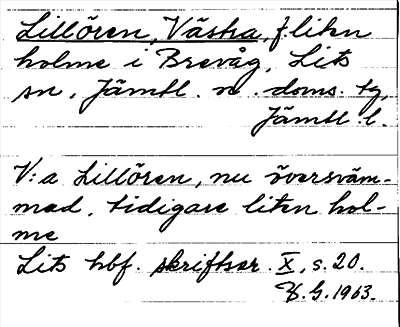 Lillören, Västra, f. liten
holme i Brevåg, Lits
sn, Jämtl. n. doms. tg,
Jämtl. l.
V:a Lillören, nu översväm-
mad, tidigare liten hol-
me
Lits hbf. skriftser. X, s. 20.
H.G. 1963.